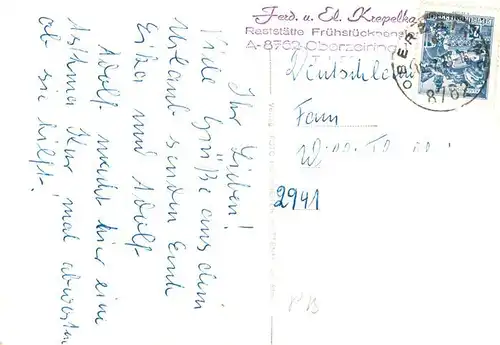 Ihr Lieben!
Viele Grüße aus dem
Urlaub senden Euch
und Adolf
Adolf macht hier eine
Asthma Kur, mal abwarten
ob sie hilft.
Ferd. u. El. Krepelka
Raststätte Frühstückspens
A-8762 Oberzeiring
Deutschland
Fam
2941
8762
PB